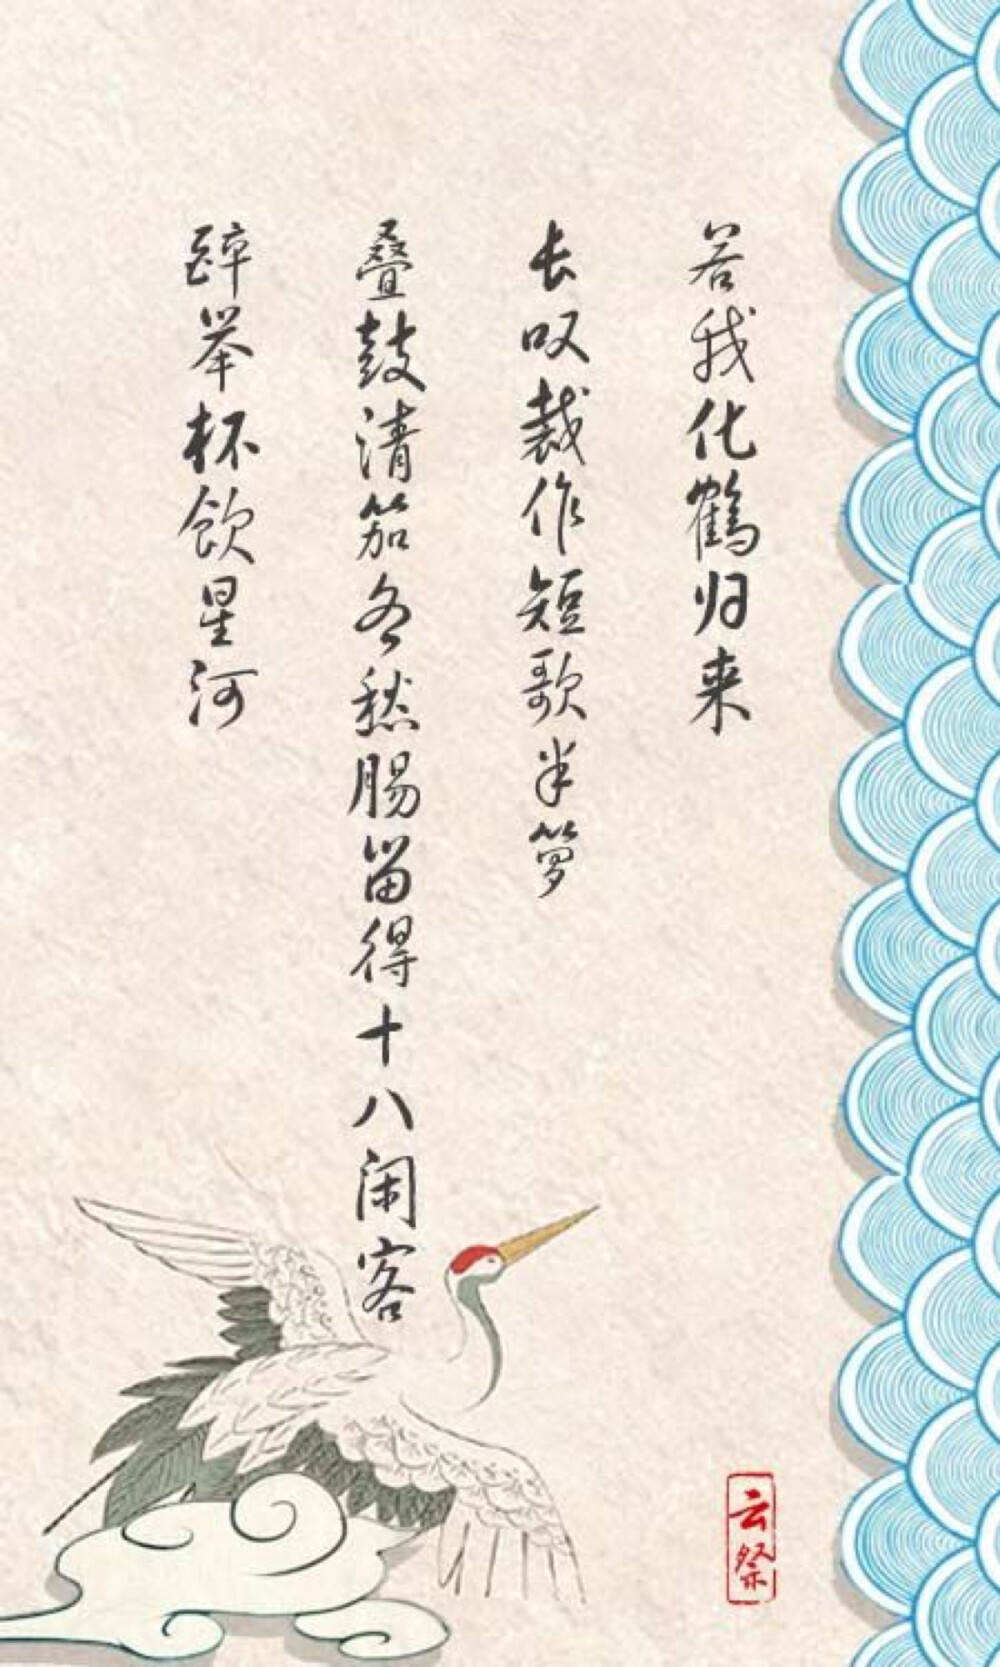 若我化鹤归来
长叹裁作短歌半箩
叠鼓清笳各愁肠留得十八闲客
醉举杯饮星河
云祭